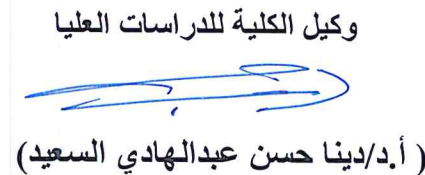 وكيل الكلية للدراسات العليا
( أ.د/دينا حسن عبدالهادي السعيد)